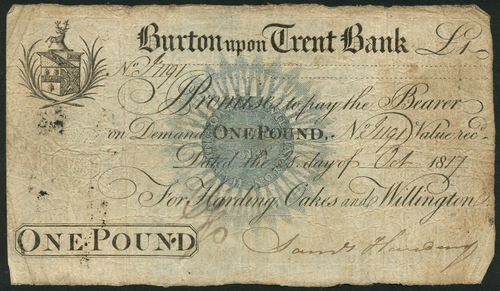 Burton upon Trent Bank £1.
No. 1191
Promise to pay the Bearer
on Demand ONE POUND, No. 1191 Value recd.
Dated the day of Oct 1817
For Harding, Oakes and Willington.
ONE·POUND
Harding